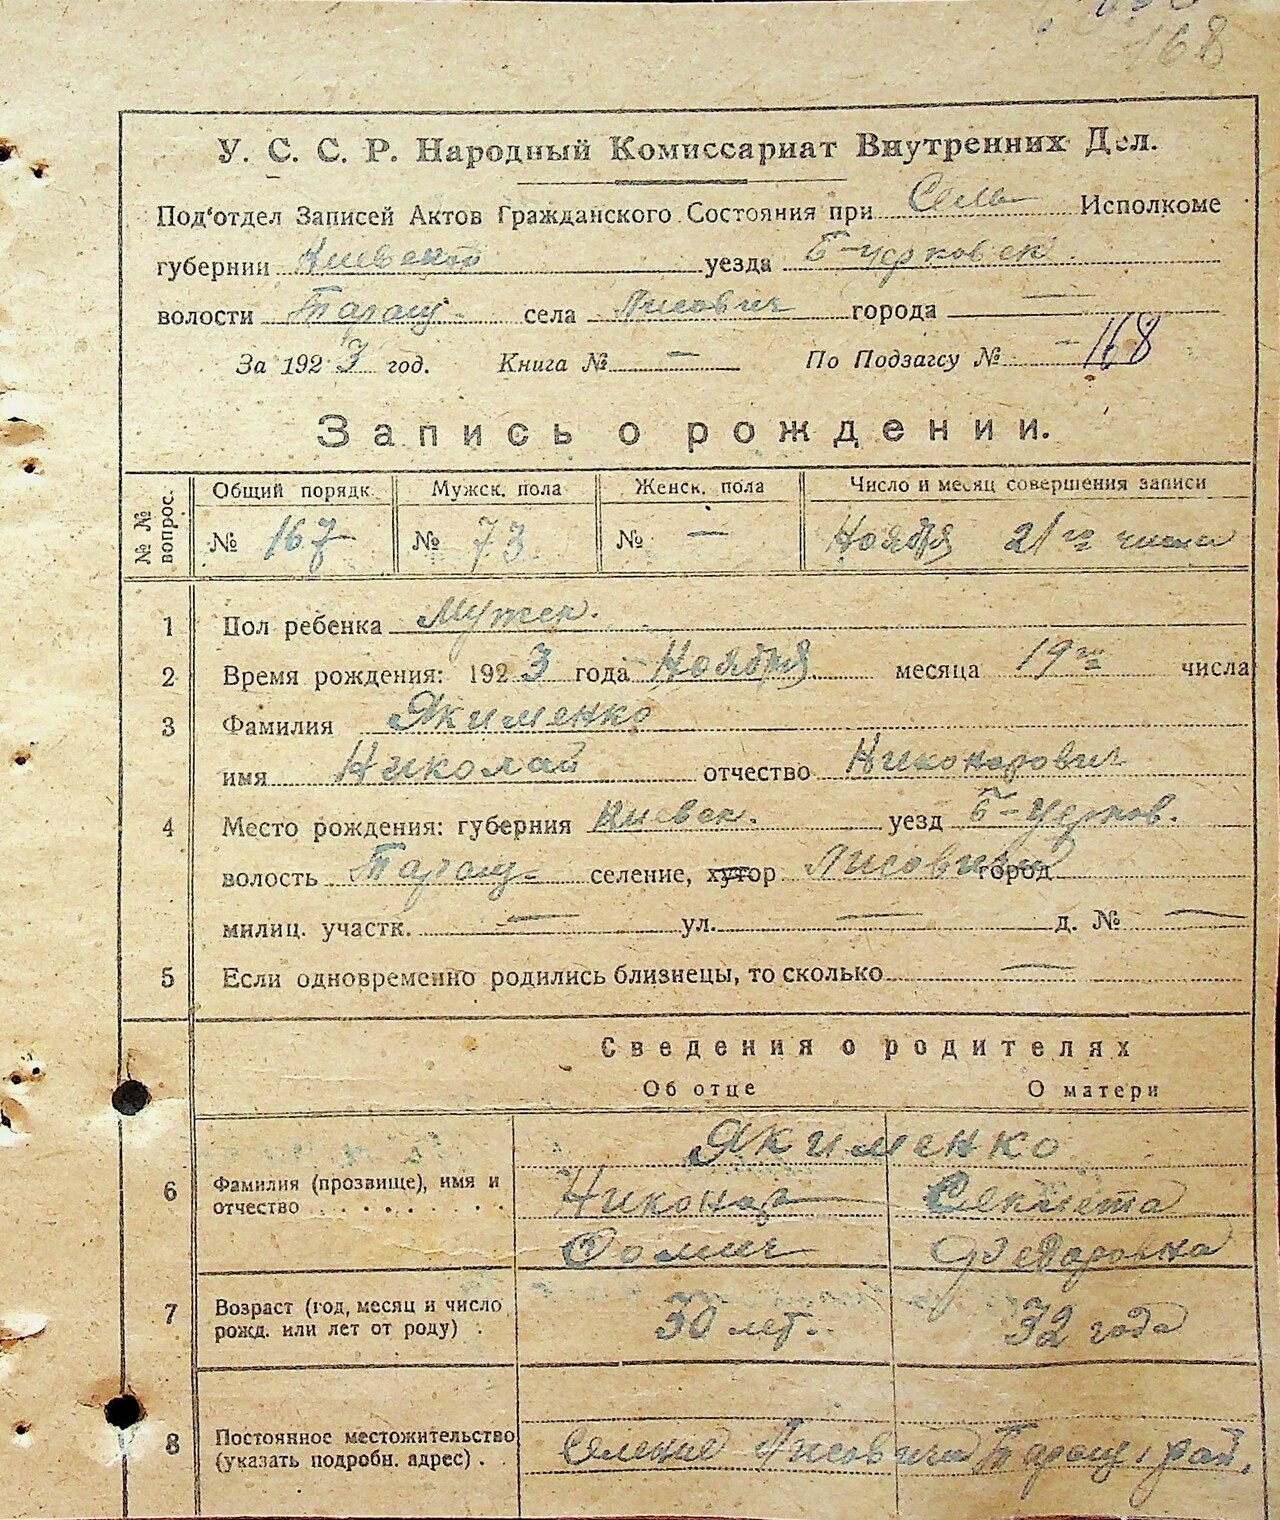 168
У. С. С. Р. Народный Комиссариат Внутренних Дел.
Под‘отдел Записей Актов Гражданского Состояния при Сель Исполкоме
губернии Киевской уезда Б-Церковск.
волости Таращ- села Лисович города —
За 1923 год. Книга № — По Подзагсу № — 168
Запись о рождении.
№ № вопрос. Общий порядк. Мужск. пола Женск. пола Число и месяц совершения записи
№ 167 № 73. № — Ноября 21го числа
1 Пол ребенка Мужск.
2 Время рождения: 1923 года Ноября месяца 19го числа
3 Фамилия Якименко
имя Николай отчество Никонорович
4 Место рождения: губерния Киевск. уезд Б-Церков.
волость Таращ- селение, хутор Лисовичи город
милиц. участк. — ул. — д. № —
5 Если одновременно родились близнецы, то сколько —
Сведения о родителях
Об отце О матери
Якименко
6 Фамилия (прозвище), имя и Никонор Секлета
отчество . . . . . . . Фомич Федоровна
7 Возраст (год, месяц и число 30 лет. 32 года
рожд. или лет от роду) .
8 Постоянное местожительство Селение Лисовичи Таращ. рай.
(указать подробн. адрес) . .